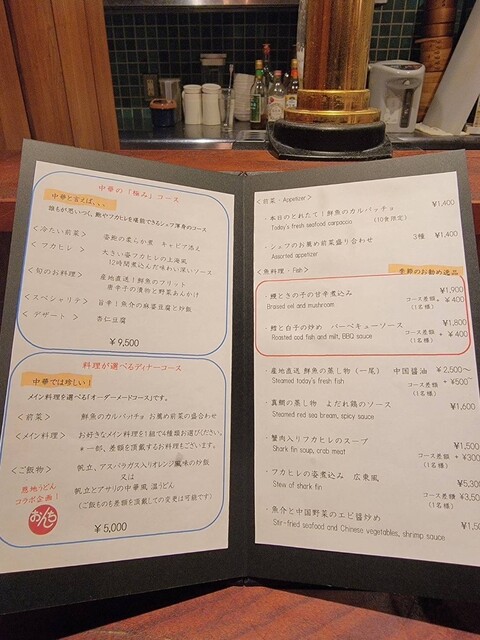 中華の「極み」コース
中華と言えば、、、
誰もが思いつく、鮑やフカヒレを堪能できるシェフ渾身のコース
<冷たい前菜> 姿鮑の柔らか煮 キャビア添え
<フカヒレ> 大きい姿フカヒレの上海風
12時間煮込んだ味わい深いソース
<旬のお料理> 産地直送!鮮魚のフリット
唐辛子の漬物と野菜あんかけ
<スペシャリテ> 旨辛!魚介の麻婆豆腐と炒飯
<デザート> 杏仁豆腐
¥9,500
料理が選べるディナーコース
中華では珍しい!
メイン料理を選べる「オーダーメードコース」です。
<前菜> 鮮魚のカルパッチョ お薦め前菜の盛合わせ
<メイン料理> お好きなメイン料理を1組で4種類お選びください。
*一部、差額を頂戴するお料理もございます。
<ご飯物> 帆立、アスパラガス入りオレンジ風味の炒飯
又は
帆立とアサリの中華風 温うどん
(ご飯ものも差額を頂戴しての変更は可能です)
恩地うどん
コラボ企画!
おんち
¥5,000
<前菜・Appetizer>
・本日のとれたて!鮮魚のカルパッチョ ¥1,400
Today's fresh seafood carpaccio (10食限定)
・シェフのお薦め前菜盛り合わせ 3種 ¥1,400
Assorted appetizer
<魚料理・Fish> 季節のお勧め逸品
・鰻ときの子の甘辛煮込み ¥1,900
Braised eel and mushroom コース差額 + ¥400
(1名様)
・鱈と白子の炒め バーベキューソース ¥1,800
Roasted cod fish and milt, BBQ sauce コース差額 + ¥400
(1名様)
・産地直送 鮮魚の蒸し物(一尾) 中国醤油 ¥2,500~
Steamed today's fresh fish コース差額 + ¥500~
(1名様)
・真鯛の蒸し物 よだれ鶏のソース ¥1,600
Steamed red sea bream, spicy sauce
・蟹肉入りフカヒレのスープ ¥1,500
Shark fin soup, crab meat コース差額 + ¥300
(1名様)
・フカヒレの姿煮込み 広東風 ¥5,300
Stew of shark fin コース差額 + ¥3,50
(1名様)
・魚介と中国野菜のエビ醤炒め ¥1,50
Stir-fried seafood and Chinese vegetables, shrimp sauce